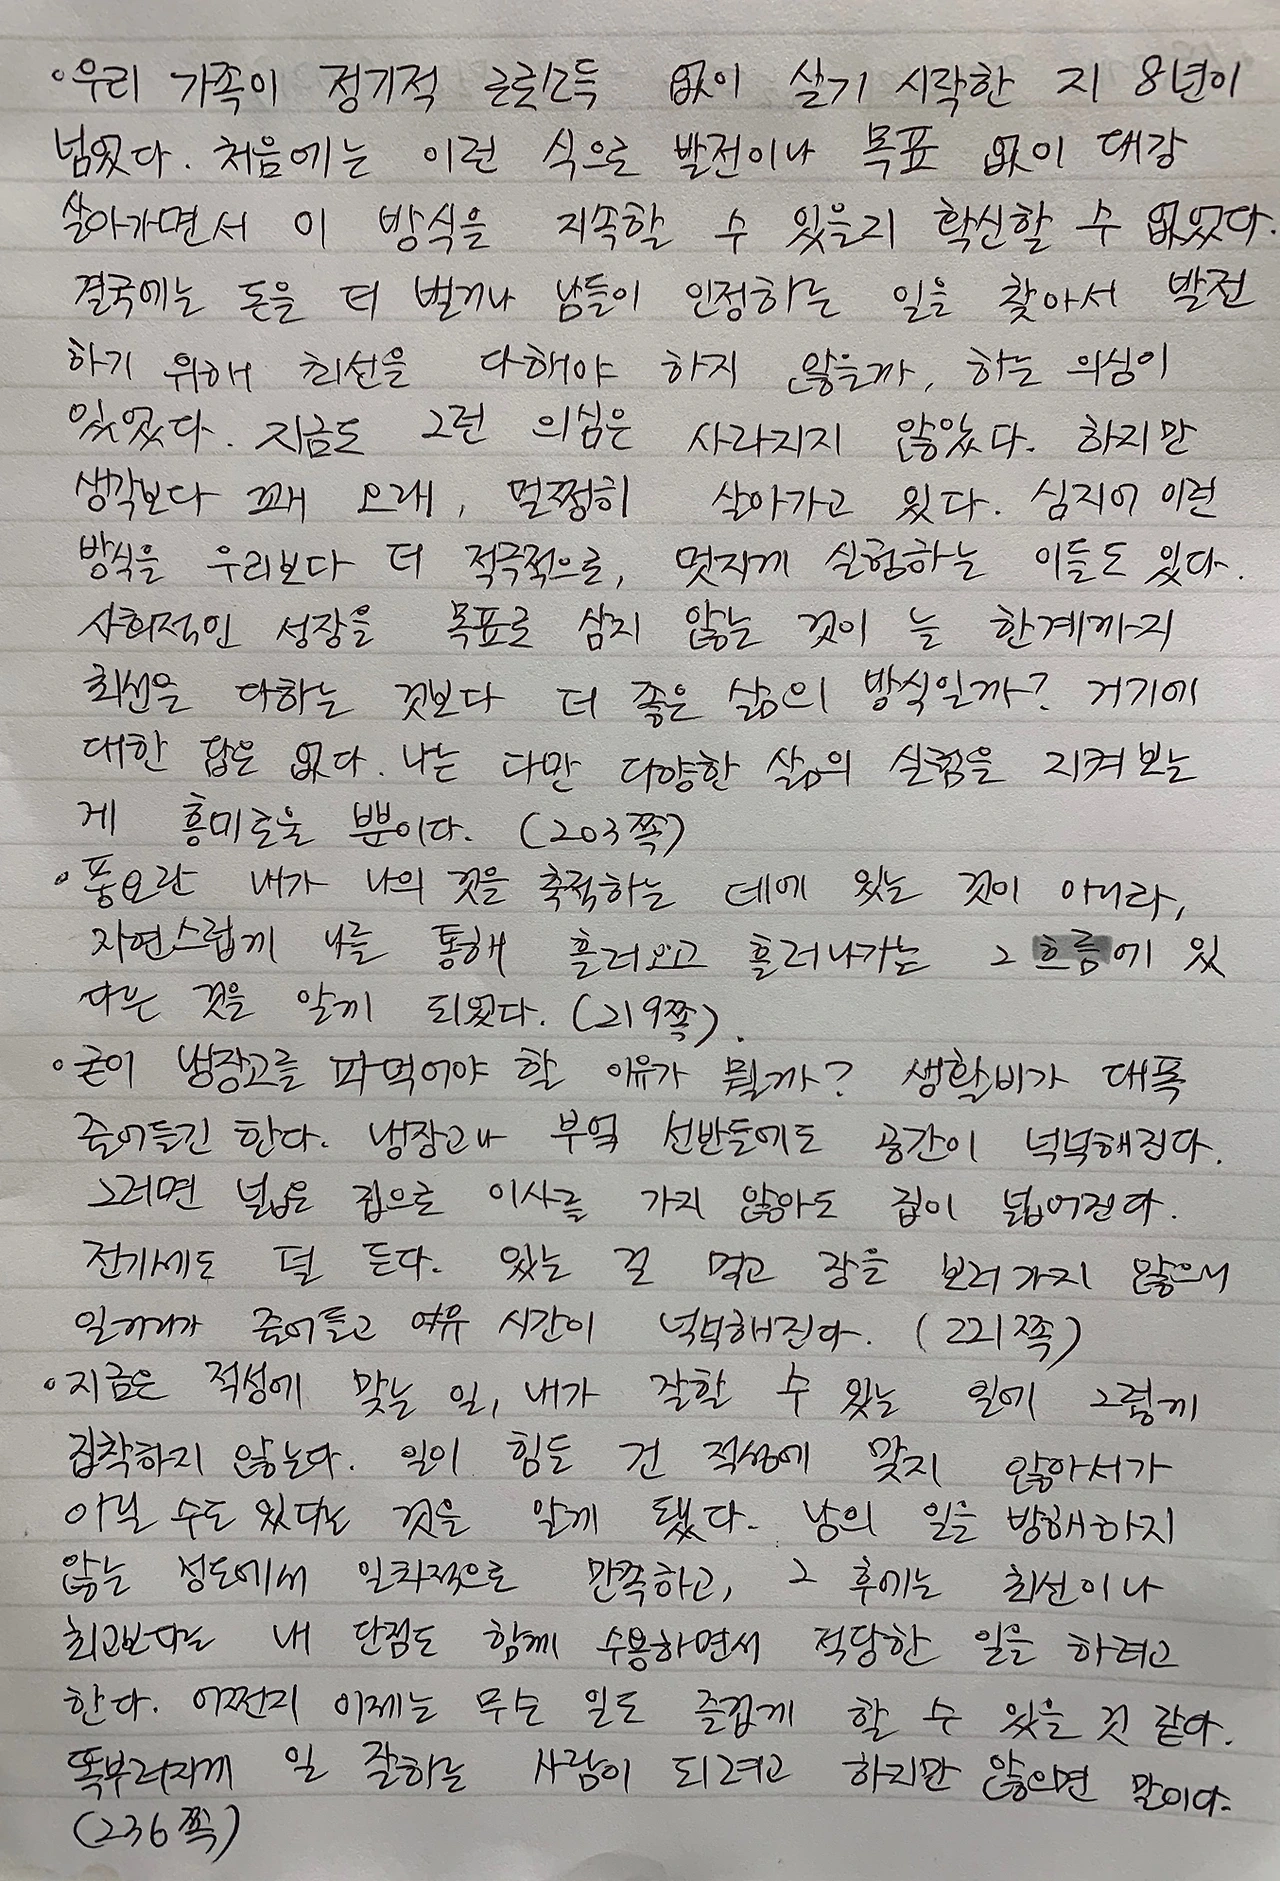 ◦우리 가족이 정기적 근로소득 없이 살기 시작한 지 8년이
넘었다. 처음에는 이런 식으로 발전이나 목표 없이 대강
살아가면서 이 방식을 지속할 수 있을지 확신할 수 없었다.
결국에는 돈을 더 벌거나 남들이 인정하는 일을 찾아서 발전
하기 위해 최선을 다해야 하지 않을까, 하는 의심이
있었다. 지금도 그런 의심은 사라지지 않았다. 하지만
생각보다 꽤 오래, 멀쩡히 살아가고 있다. 심지어 이런
방식을 우리보다 더 적극적으로, 멋지게 실험하는 이들도 있다.
사회적인 성장을 목표로 삼지 않는 것이 늘 한계까지
최선을 다하는 것보다 더 좋은 삶의 방식일까? 거기에
대한 답은 없다. 나는 다만 다양한 삶의 실험을 지켜보는
게 흥미로울 뿐이다. (203쪽)
◦풍요란 내가 나의 것을 축적하는 데에 있는 것이 아니라,
자연스럽게 나를 통해 흘러오고 흘러나가는 그 흐름에 있
다는 것을 알게 되었다. (219쪽).
◦굳이 냉장고를 파먹어야 할 이유가 뭘까? 생활비가 대폭
줄어들긴 한다. 냉장고나 부엌 선반들에도 공간이 넉넉해진다.
그러면 넓은 집으로 이사를 가지 않아도 집이 넓어진다.
전기세도 덜 든다. 있는 걸 먹고 장을 보러 가지 않으니
일거리가 줄어들고 여유 시간이 넉넉해진다. (221쪽)
◦지금은 적성에 맞는 일, 내가 잘할 수 있는 일에 그렇게
집착하지 않는다. 일이 힘든 건 적성에 맞지 않아서가
아닐 수도 있다는 것을 알게 됐다. 남의 일을 방해하지
않는 정도에서 일차적으로 만족하고, 그 후에는 최선이나
최고보다는 내 단점도 함께 수용하면서 적당한 일을 하려고
한다. 어쩐지 이제는 무슨 일도 즐겁게 할 수 있을 것 같다.
똑부러지게 일 잘하는 사람이 되려고 하지만 않으면 말이다.
(236쪽)